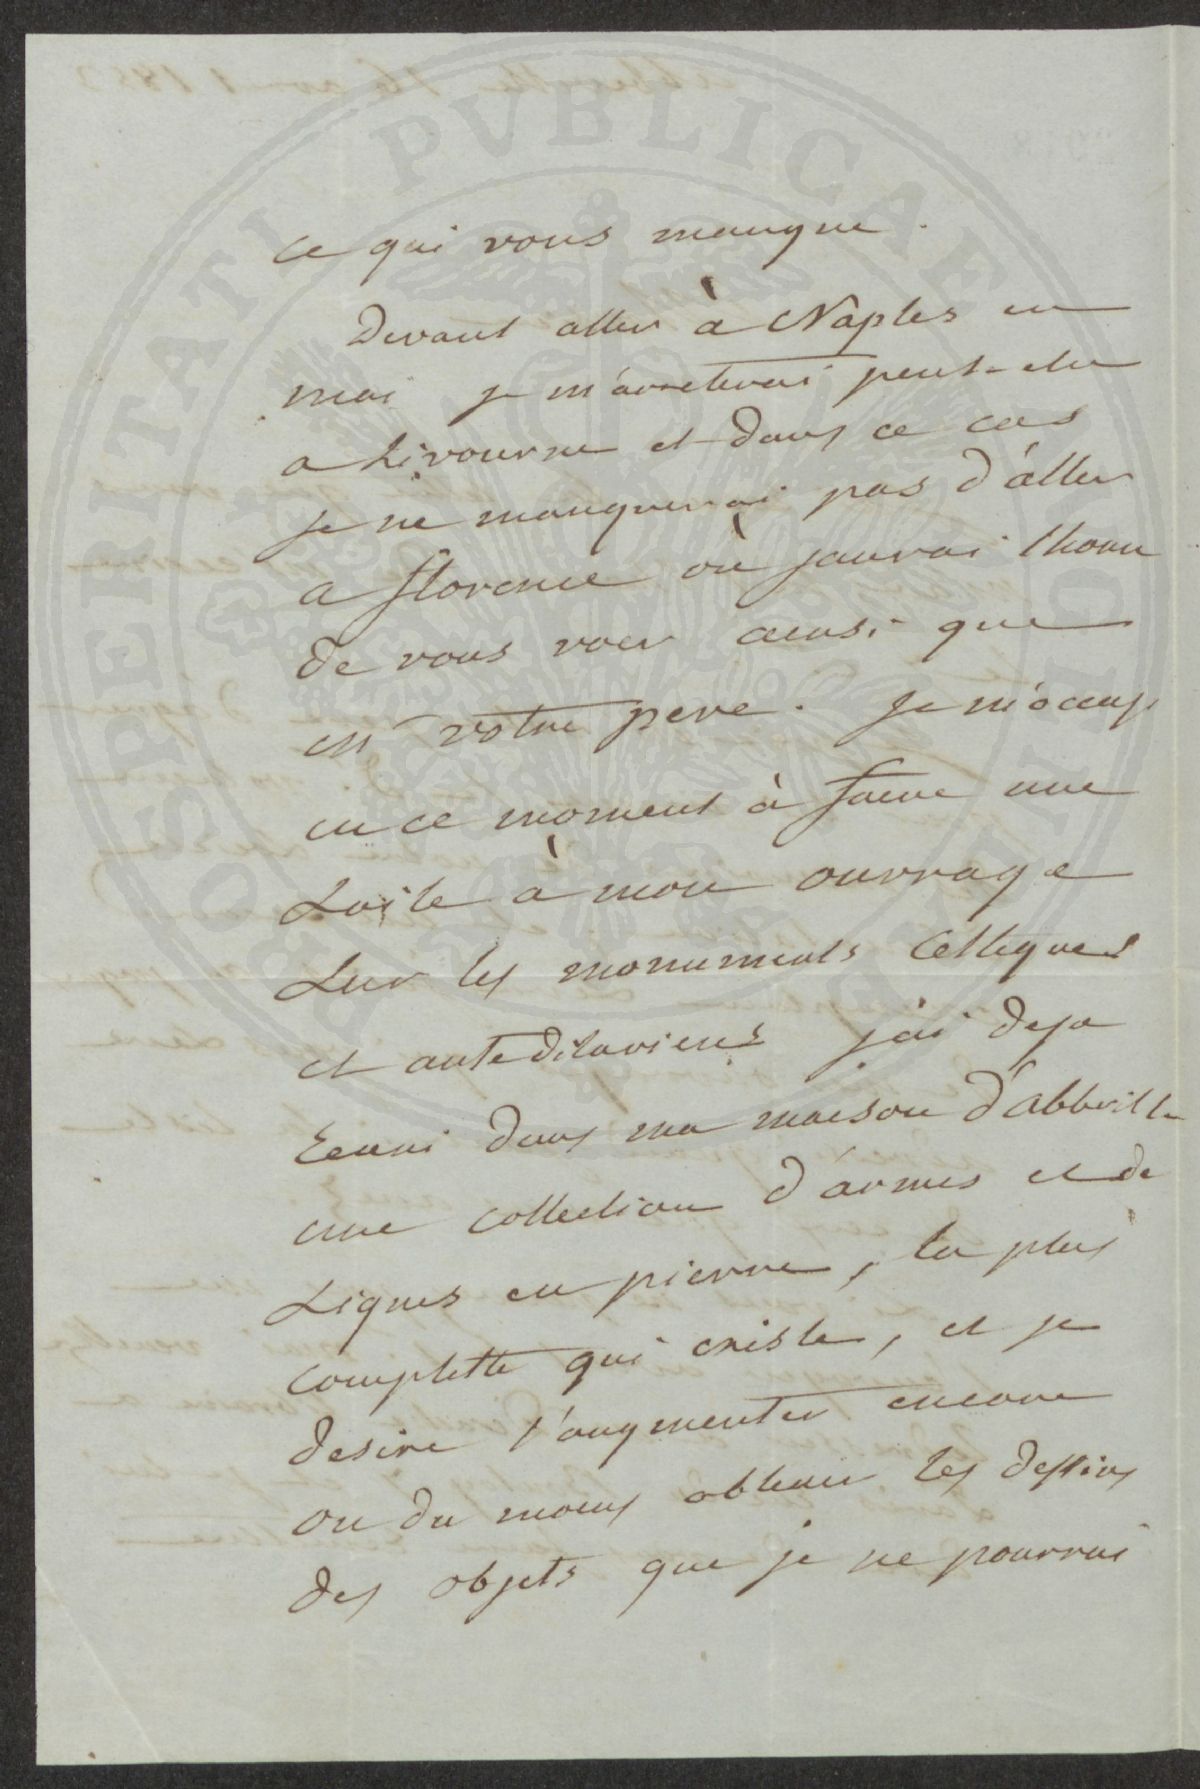 ce qui vous manque.
Devant aller à Naples en
mai je m'arreterai peut-etre
a Livourne et dans ce cas
je ne manquerai pas d'aller
a florence où j'aurai lhonn
de vous voir ainsi que
mr votre pere. Je m'occup
en ce moment à faire une
Suite à mon ouvrage
Sur les monuments Celtiques
et antediluviens j'ai deja
reuni dans ma maison d'abbeville
une collection d'armes et de
Signes en pierre, la plus
complette qui existe, et je
desire l'augmenter encore
ou du moins obtenir les dessins
des objets que je ne pourrai
PROSPERITATI PVBLICAE